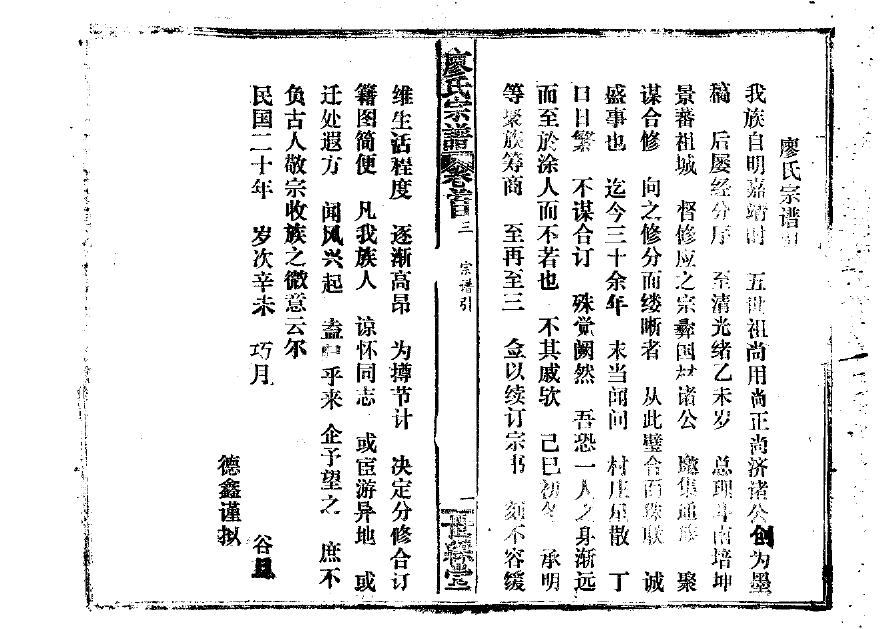 廖氏宗谱
我族自明嘉靖时 五世祖尚用尚正尚济诸公创为墨
稿 后屡经分序 至清光绪乙未岁 总理斗南培坤
景蕃祖城 督修应之宗彝国材诸公 邀集通族 聚
谋合修 向之修分而缕晰者 从此璧合而珠联 诚
盛事也 迄今三十余年 未当闻问 村庄星散 丁
口日繁 不谋合订 殊觉阙然 吾恐一人之身渐远
而至於涂人而不若也 不其戚欤 己巳初冬 承明
等聚族筹商 至再至三 佥以续订宗书 刻不容缓
廖氏宗谱 卷首 三 宗谱引 一 世綵堂
维生活程度 逐渐高昂 为撙节计 决定分修合订
籍图简便 凡我族人 谅怀同志 或宦游异地 或
迁处遐方 闻风兴起 盍 乎来 企予望之 庶不
负古人敬宗收族之微意云尔
民国二十年 岁次辛未 巧月 谷旦
德鑫谨拟